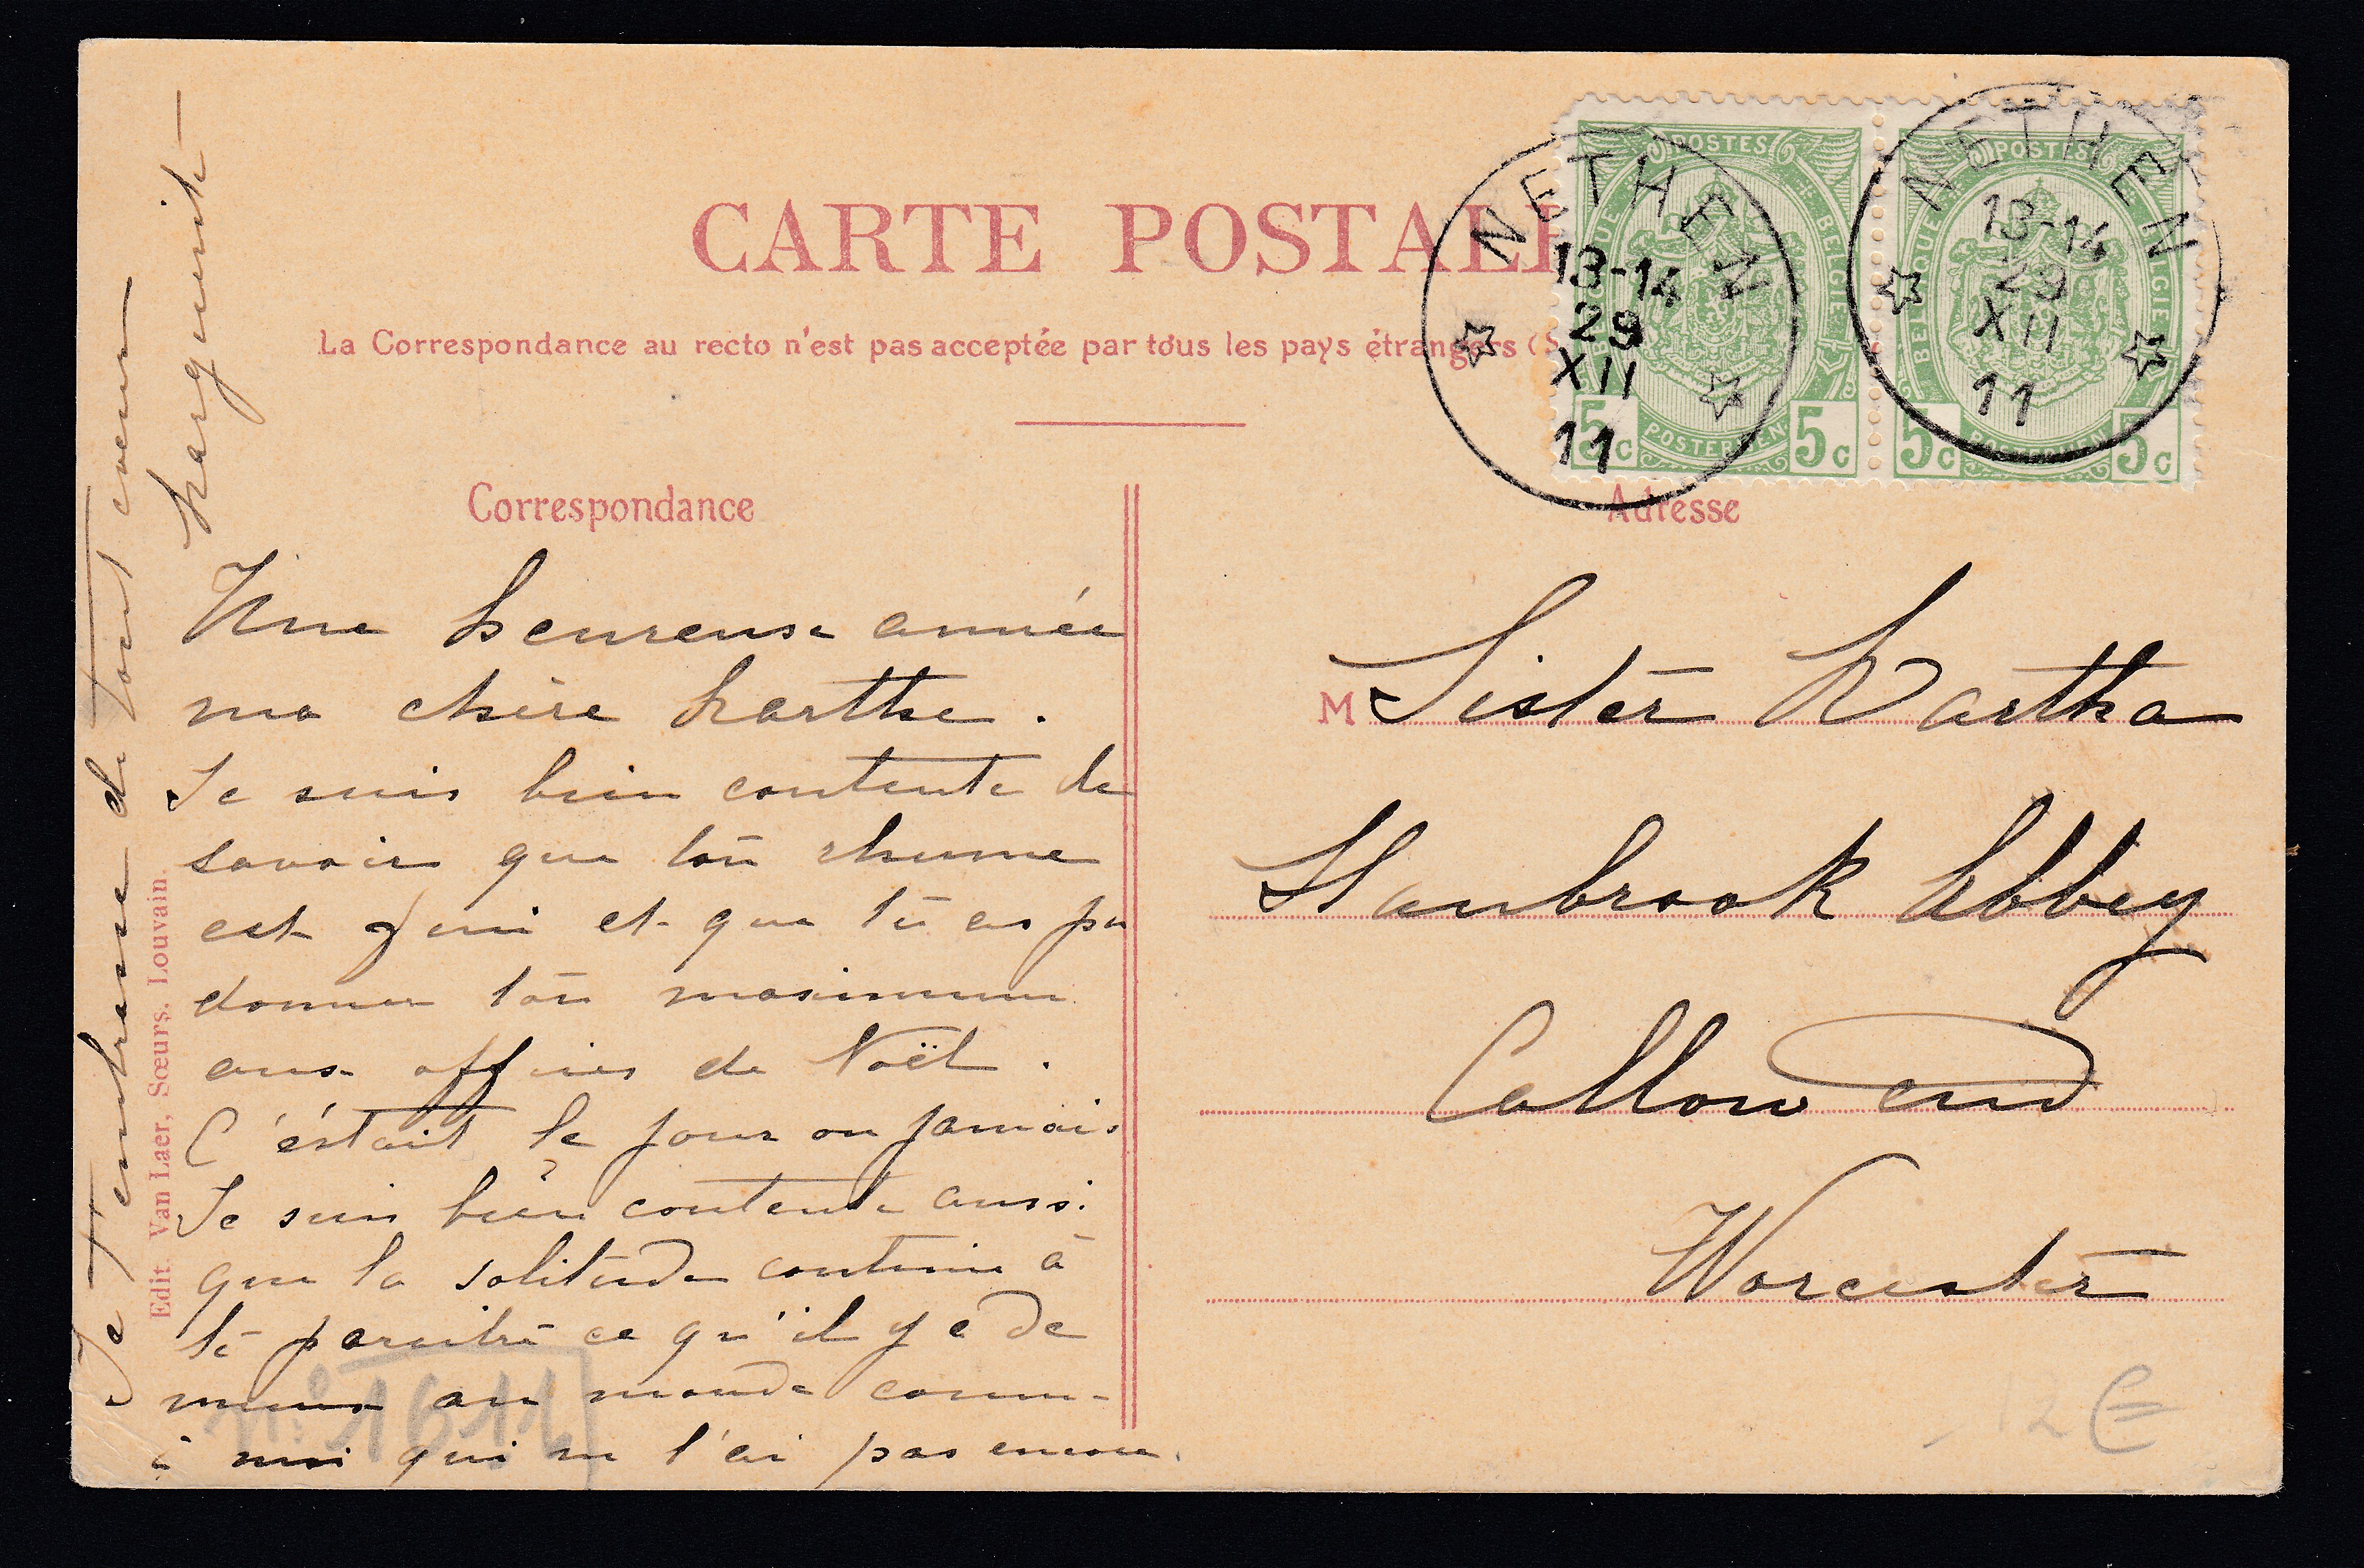 CARTE POSTALE
La Correspondance au recto n'est pas acceptée par tous les pays étrangers (S
Correspondance
Adresse
NETHEN
13-14
29
XII
11
NETHEN
13-14
29
XII
11
POSTES
BELGIQUE BELGIE
POSTERIJEN
5c 5c
POSTES
BELGIQUE BELGIE
POSTERIJEN
5c 5c
Une heureuse année
ma chère Marthe.
Je suis bien contente de
savoir que ton rhume
est fini et que tu as pu
donner ton maximum
aux offices de Noël.
C'était le jour ou jamais
Je suis bien contente aussi
que la solitude continue à
te paraître ce qu'il y a de
mieux au monde comme
à moi qui ne l'ai pas encore.
Je t'embrasse de tout cœur
Marguerite
Edit. Van Laer, Sœurs, Louvain.
M Sister Martha
Stanbrook Abbey
Callow end
Worcester